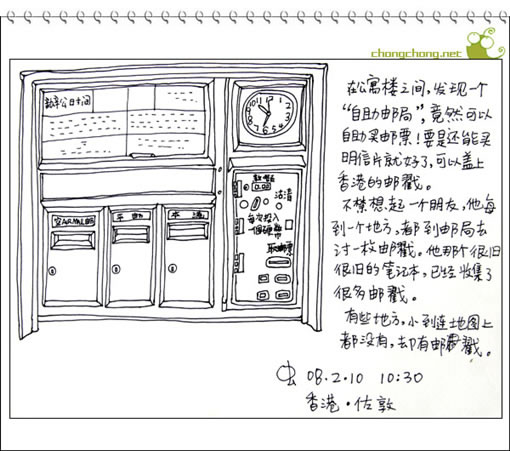 chongchong.net
在公寓楼之间，发现一个
“自助邮局”，竟然可以
自助买邮票！要是还能买
明信片就好了，可以盖上
香港的邮戳。
不禁想起一个朋友，他每
到一个地方，都到邮局去
讨一枚邮戳。他那个很旧
很旧的笔记本，已经收集了
很多邮戳。
有些地方，小到连地图上
都没有，却有邮戳。
08.2.10 10:30
香港·佐敦
0.00
沽清
每次投入
一個硬幣
取邮票
空AIRMAIL邮
平邮
本港